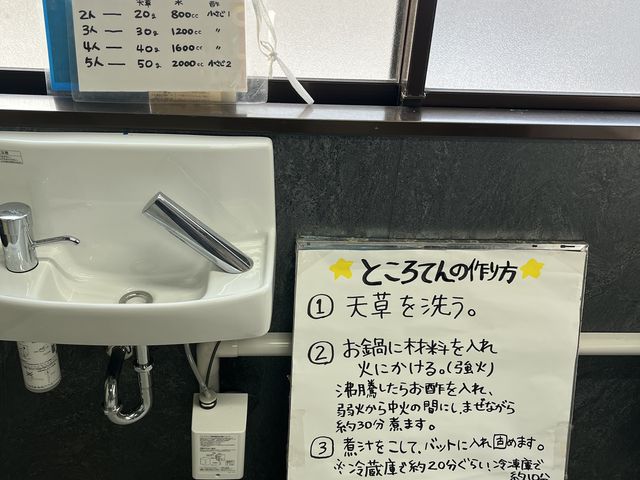 天草 水 酢
2人 — 20g 800cc 小さじ1
3人 — 30g 1200cc 〃
4人 — 40g 1600cc 〃
5人 — 50g 2000cc 小さじ2
ところてんの作り方
① 天草を洗う。
② お鍋に材料を入れ
火にかける。(強火)
沸騰したらお酢を入れ、
弱火から中火の間にし、まぜながら
約30分煮ます。
③ 煮汁をこして、バットに入れ固めます。
※冷蔵庫で約20分ぐらい、冷凍庫で
約10分